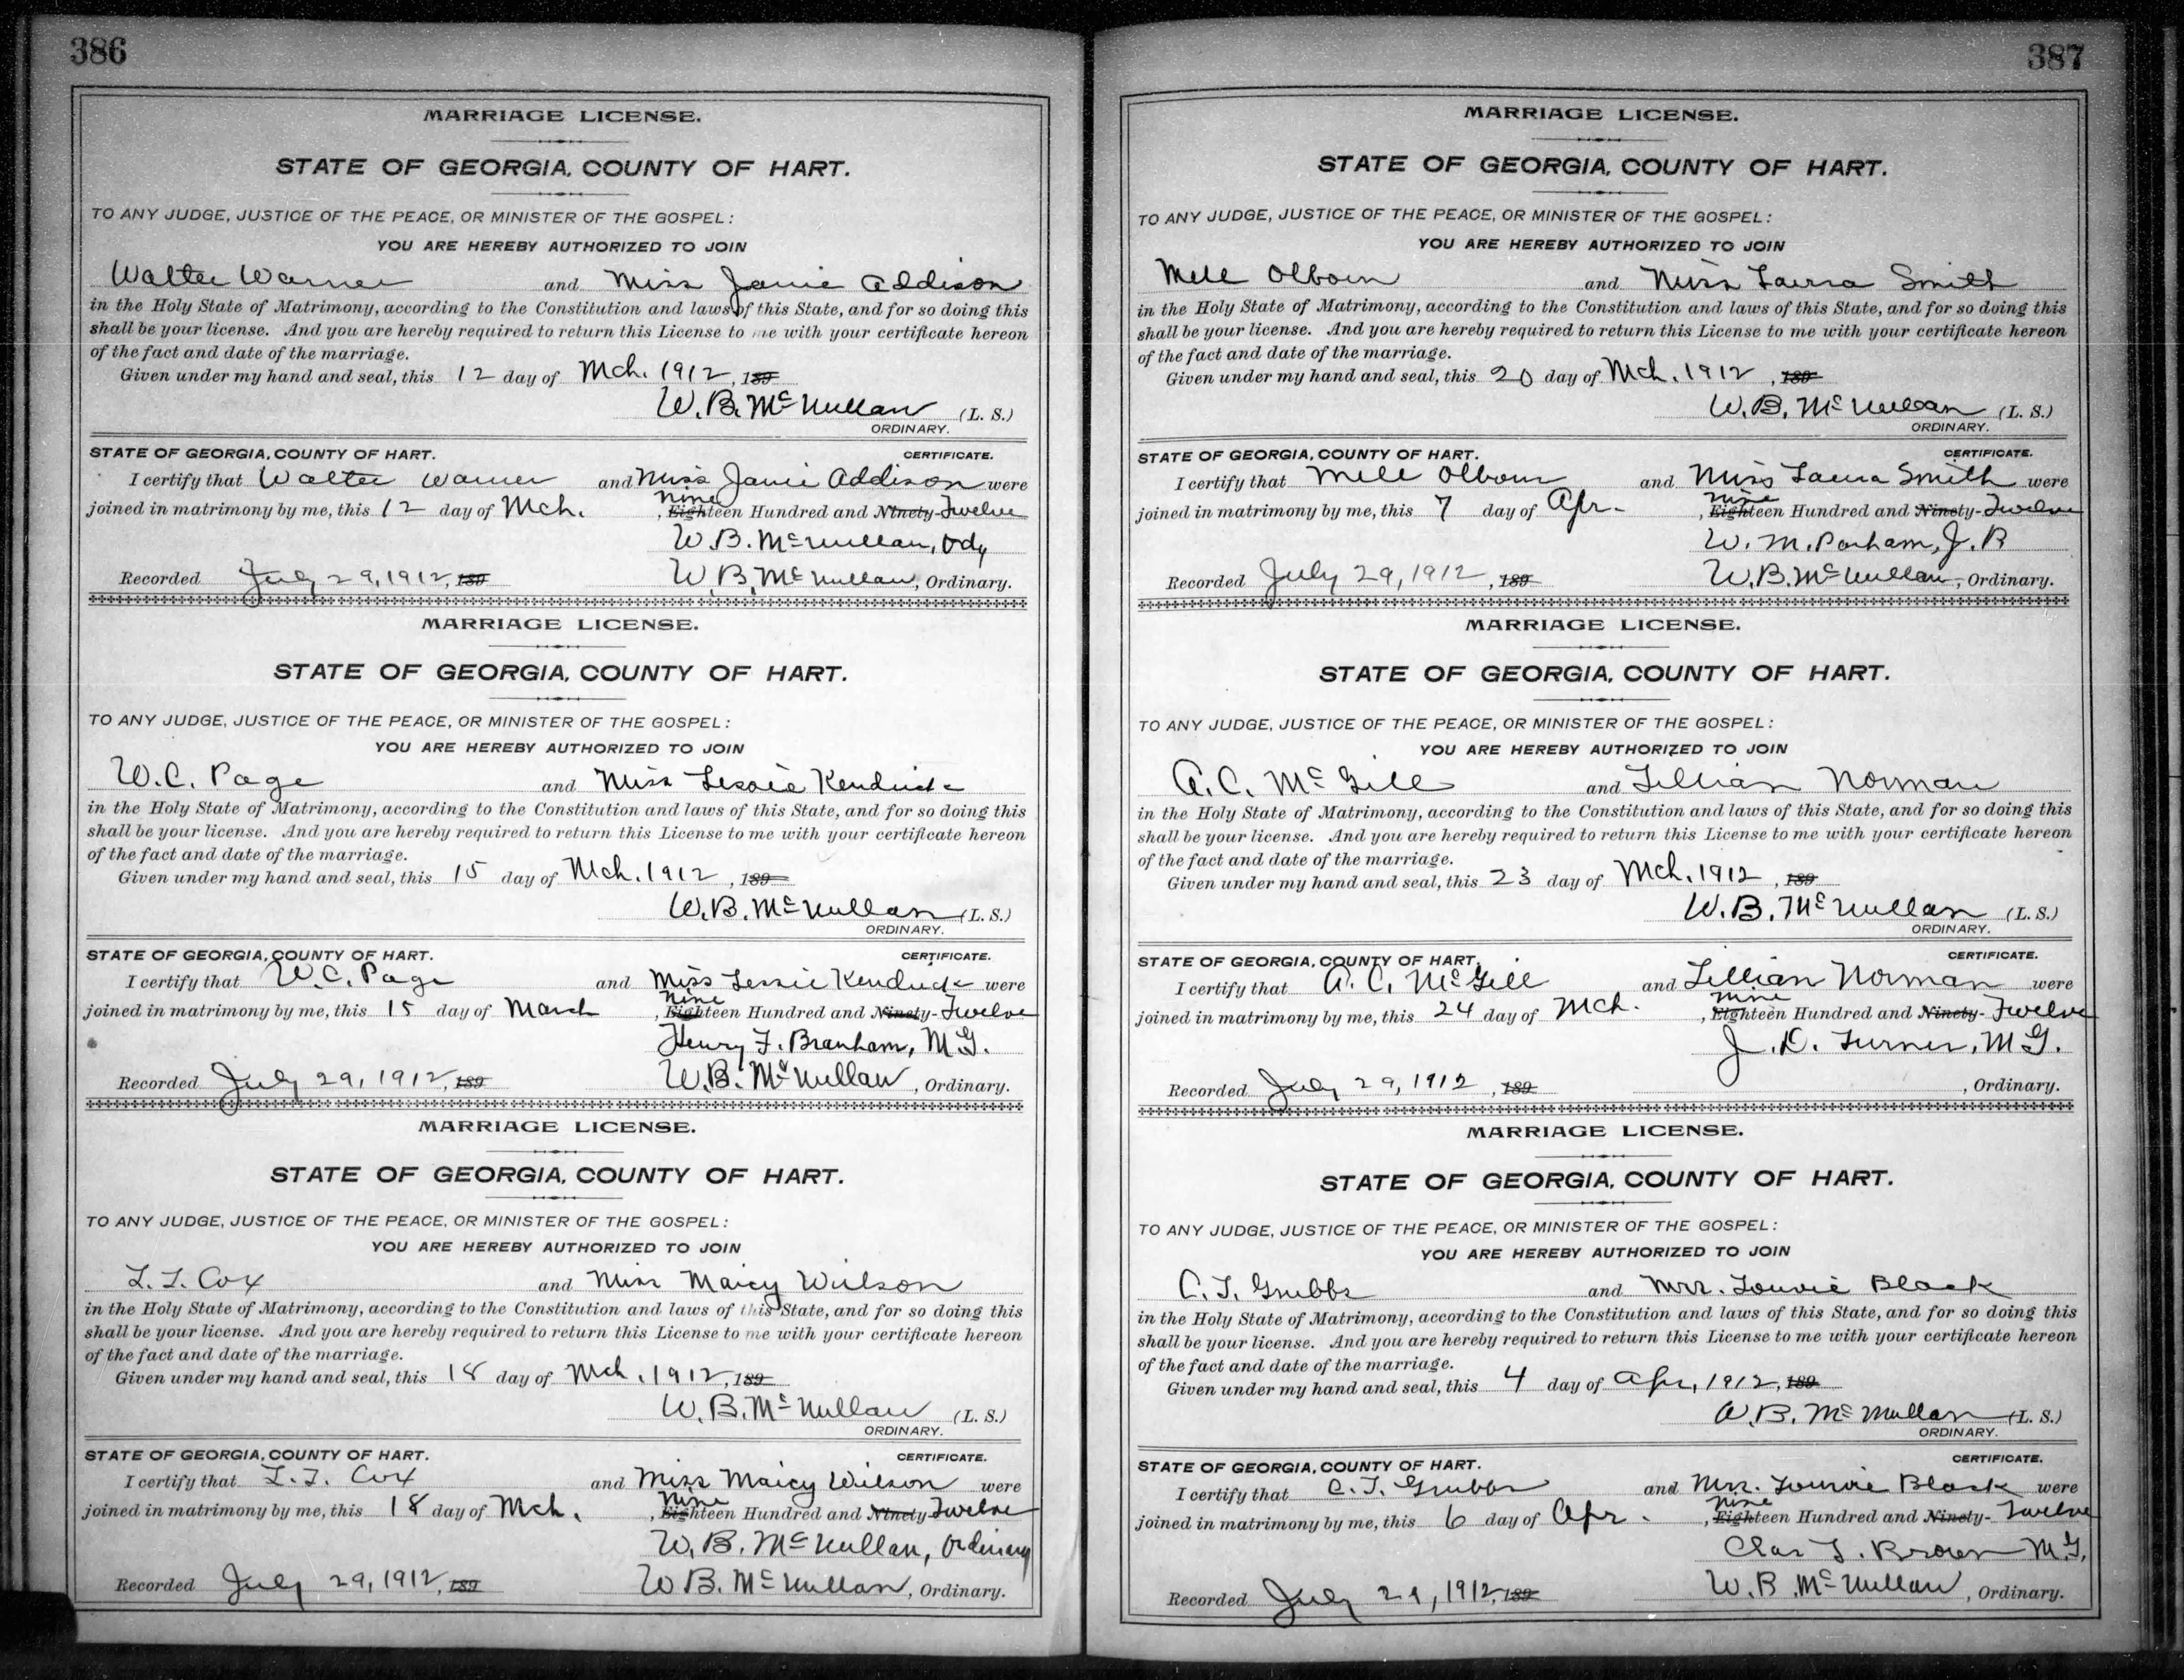 386
MARRIAGE LICENSE.
STATE OF GEORGIA, COUNTY OF HART.
TO ANY JUDGE, JUSTICE OF THE PEACE, OR MINISTER OF THE GOSPEL:
YOU ARE HEREBY AUTHORIZED TO JOIN
Walter Warner and Miss Janie Addison
in the Holy State of Matrimony, according to the Constitution and laws of this State, and for so doing this
shall be your license. And you are hereby required to return this License to me with your certificate hereon
of the fact and date of the marriage.
Given under my hand and seal, this 12 day of Mch. 1912, 189
W. B. McMullan (L. S.)
ORDINARY.
STATE OF GEORGIA, COUNTY OF HART. CERTIFICATE.
I certify that Walter Warner and Miss Janie Addison were
Nine
joined in matrimony by me, this 12 day of Mch. , Eighteen Hundred and Ninety-Twelve
W. B. McMullan, Ody
Recorded July 29, 1912, 189 W B McMullan, Ordinary.
MARRIAGE LICENSE.
STATE OF GEORGIA, COUNTY OF HART.
TO ANY JUDGE, JUSTICE OF THE PEACE, OR MINISTER OF THE GOSPEL:
YOU ARE HEREBY AUTHORIZED TO JOIN
W. C. Page and Miss Lessie Kendrick
in the Holy State of Matrimony, according to the Constitution and laws of this State, and for so doing this
shall be your license. And you are hereby required to return this License to me with your certificate hereon
of the fact and date of the marriage.
Given under my hand and seal, this 15 day of Mch. 1912, 189
W. B. McMullan (L. S.)
ORDINARY.
STATE OF GEORGIA, COUNTY OF HART. CERTIFICATE.
I certify that W. C. Page and Miss Lessie Kendrick were
Nine
joined in matrimony by me, this 15 day of March , Eighteen Hundred and Ninety-Twelve
Henry F. Branham, M.G.
Recorded July 29, 1912, 189 W. B. McMullan, Ordinary.
MARRIAGE LICENSE.
STATE OF GEORGIA, COUNTY OF HART.
TO ANY JUDGE, JUSTICE OF THE PEACE, OR MINISTER OF THE GOSPEL:
YOU ARE HEREBY AUTHORIZED TO JOIN
Cox and Miss Maicy Wilson
in the Holy State of Matrimony, according to the Constitution and laws of this State, and for so doing this
shall be your license. And you are hereby required to return this License to me with your certificate hereon
of the fact and date of the marriage.
Given under my hand and seal, this 18 day of Mch. 1912, 189
W. B. McMullan (L. S.)
ORDINARY.
STATE OF GEORGIA, COUNTY OF HART. CERTIFICATE.
I certify that Cox and Miss Maicy Wilson were
Nine
joined in matrimony by me, this 18 day of Mch. , Eighteen Hundred and Ninety-Twelve
W. B. McMullan, Ordinary
Recorded July 29, 1912, 189 W B. McMullan, Ordinary.
387
MARRIAGE LICENSE.
STATE OF GEORGIA, COUNTY OF HART.
TO ANY JUDGE, JUSTICE OF THE PEACE, OR MINISTER OF THE GOSPEL:
YOU ARE HEREBY AUTHORIZED TO JOIN
Mell and Miss Laura Smith
in the Holy State of Matrimony, according to the Constitution and laws of this State, and for so doing this
shall be your license. And you are hereby required to return this License to me with your certificate hereon
of the fact and date of the marriage.
Given under my hand and seal, this 20 day of Mch. 1912 , 189
W. B. McMullan (L. S.)
ORDINARY.
STATE OF GEORGIA, COUNTY OF HART. CERTIFICATE.
I certify that Mell and Miss Laura Smith were
Nine
joined in matrimony by me, this 7 day of Apr. , Eighteen Hundred and Ninety-Twelve
W. M. Parham, J. P.
Recorded July 29, 1912, 189 W. B. McMullan, Ordinary.
MARRIAGE LICENSE.
STATE OF GEORGIA, COUNTY OF HART.
TO ANY JUDGE, JUSTICE OF THE PEACE, OR MINISTER OF THE GOSPEL:
YOU ARE HEREBY AUTHORIZED TO JOIN
A. C. McGill and Lillian Norman
in the Holy State of Matrimony, according to the Constitution and laws of this State, and for so doing this
shall be your license. And you are hereby required to return this License to me with your certificate hereon
of the fact and date of the marriage.
Given under my hand and seal, this 23 day of Mch. 1912 , 189
W. B. McMullan (L. S.)
ORDINARY.
STATE OF GEORGIA, COUNTY OF HART. CERTIFICATE.
I certify that A. C. McGill and Lillian Norman were
Nine
joined in matrimony by me, this 24 day of Mch. , Eighteen Hundred and Ninety-Twelve
J. D. Turner, M.G.
Recorded July 29, 1912 , 189 , Ordinary.
MARRIAGE LICENSE.
STATE OF GEORGIA, COUNTY OF HART.
TO ANY JUDGE, JUSTICE OF THE PEACE, OR MINISTER OF THE GOSPEL:
YOU ARE HEREBY AUTHORIZED TO JOIN
C. T. Grubbs and Mrs. Louvie Black
in the Holy State of Matrimony, according to the Constitution and laws of this State, and for so doing this
shall be your license. And you are hereby required to return this License to me with your certificate hereon
of the fact and date of the marriage.
Given under my hand and seal, this 4 day of Apr, 1912, 189
W. B. McMullan (L. S.)
ORDINARY.
STATE OF GEORGIA, COUNTY OF HART. CERTIFICATE.
I certify that C. T. Grubbs and Mrs. Louvie Black were
Nine
joined in matrimony by me, this 6 day of Apr. , Eighteen Hundred and Ninety-Twelve
Chas T. Brown M.G.
Recorded July 29, 1912, 189 W. B. McMullan, Ordinary.